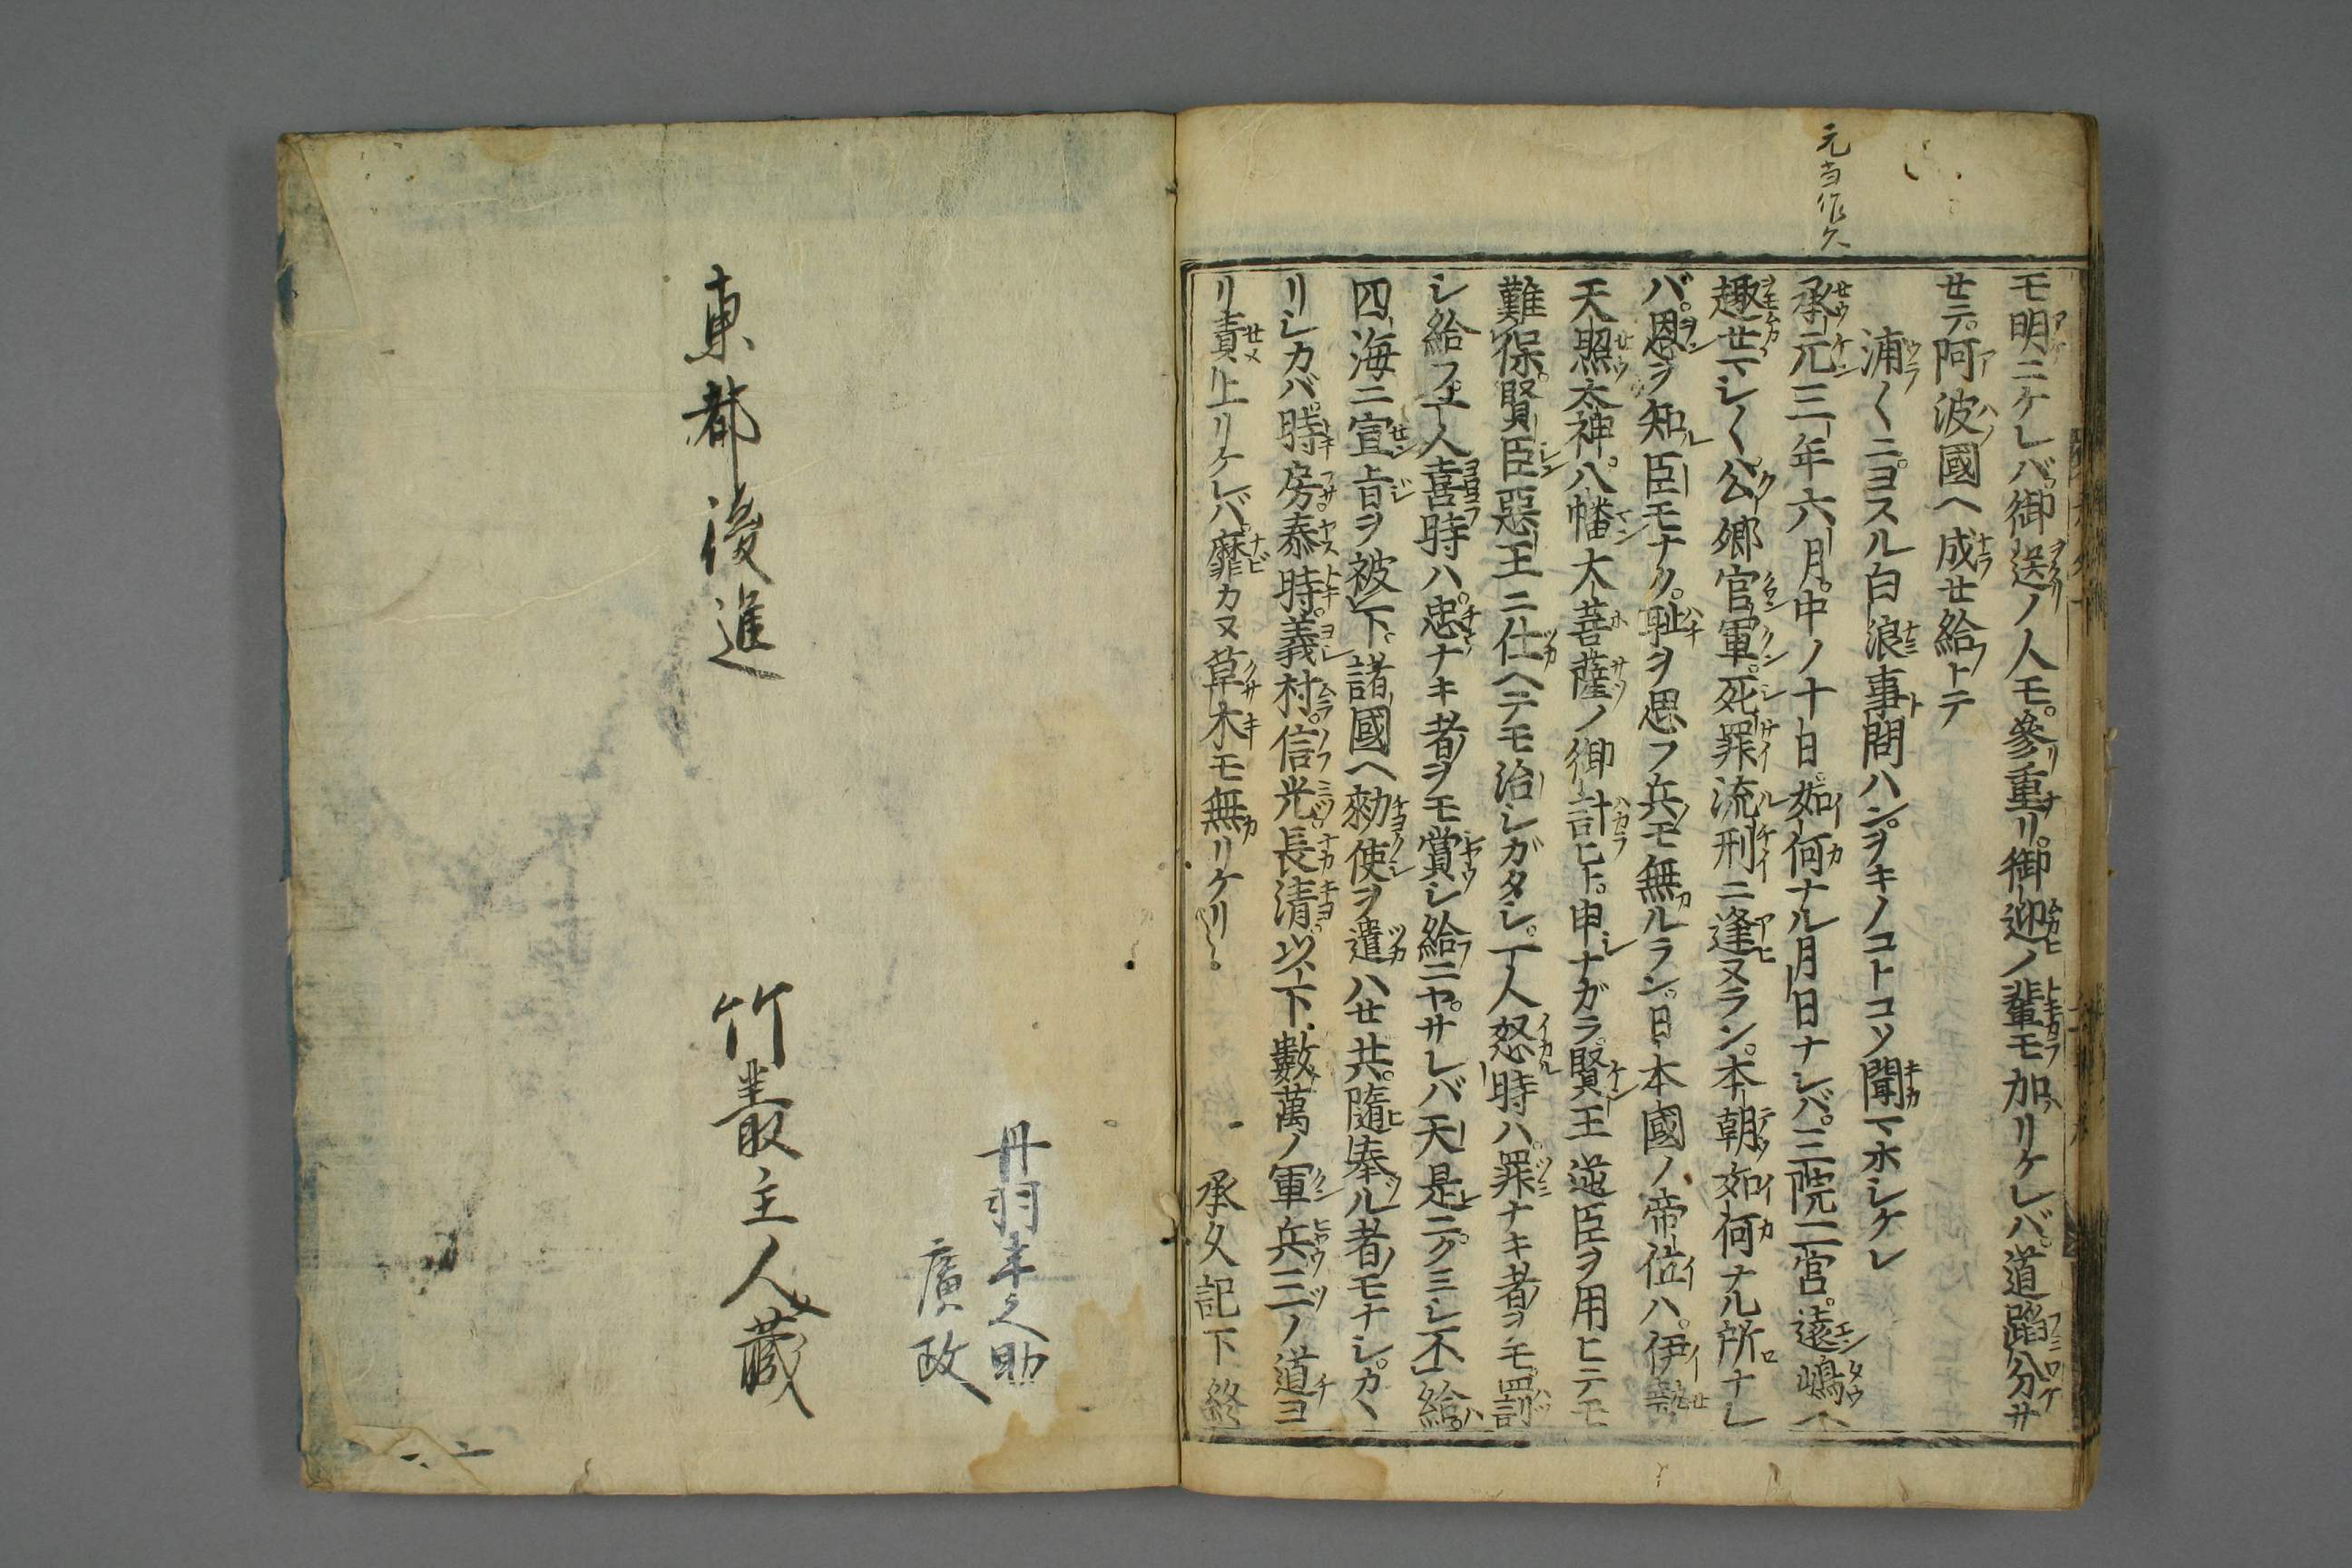 元当作久
モ明ニケレバ御送ノ人モ。參重リ。御迎ノ輩モ加リケレバ。道蹈分サ
セテ。阿波國ヘ成セ給トテ
浦〱ニヨスル白浪事問ハン。ヲキノコトコソ聞マホシケレ
承元三年六月。中ノ十日。如何ナル月日ナレバ。三院二宮。遠嶋ヘ
趣セマシ〱。公卿官軍。死罪流刑ニ逢ヌラン。本朝如何ナル所ナレ
バ。恩ヲ知臣モナク。耻ヲ思フ兵モ無ルラン。日本國ノ帝位ハ。伊勢
天照太神。八幡大菩薩ノ御計ヒト。申ナガラ。賢王逆臣ヲ用ヒテモ
難保。賢臣惡王ニ仕ヘテモ治シガタシ。一人怒時ハ。罪ナキ者ヲモ罰
シ給フ。一人喜時ハ。忠ナキ者ヲモ賞シ給ニヤ。サレバ天是ニクミシ不給。
四海ニ宣旨ヲ被下。諸國ヘ勅使ヲ遣ハセ共。隨奉ル者モナシ。カヽ
リシカバ。時房泰時。義村。信光。長清。以下。數萬ノ軍兵三ノ道ヨ
リ責上リケレバ。靡カヌ草木モ無リケリ。
承久記下終
丹羽半之助
廣政
東都後進　竹叢主人藏